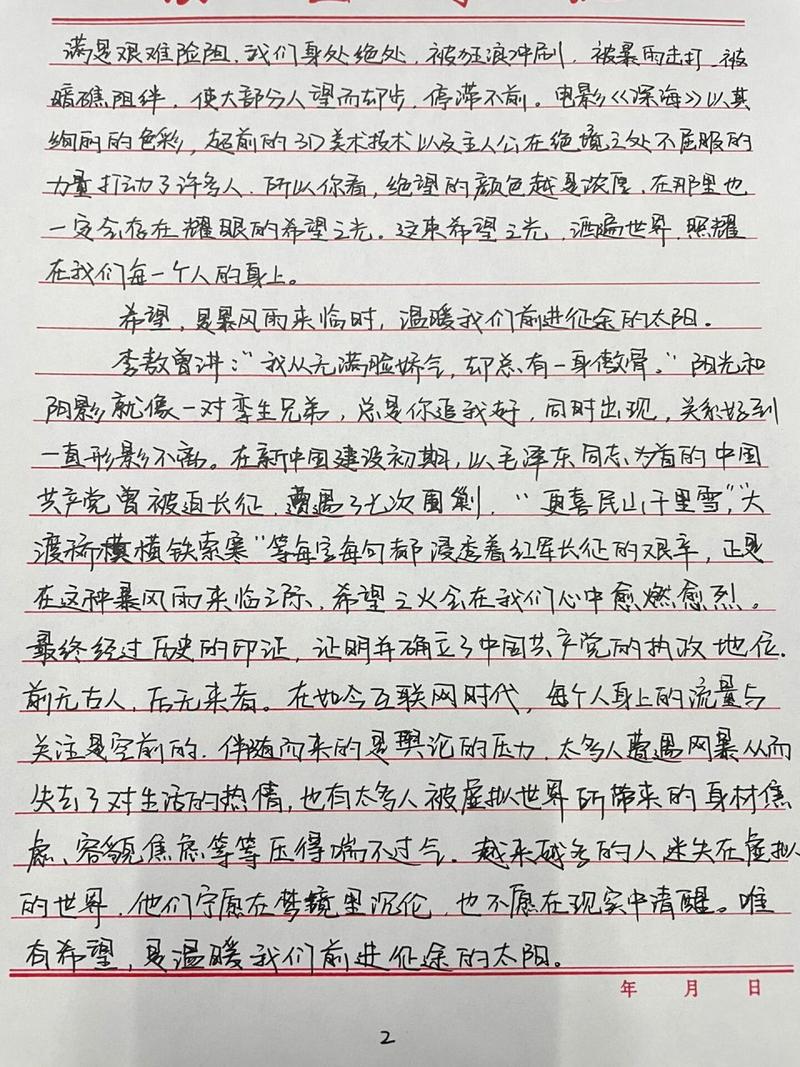 满是艰难险阻,我们身处绝处,被狂浪冲刷,被暴雨击打,被
暗礁阻绊,使大部分人望而却步,停滞不前。电影《深海》以其
绚丽的色彩,超前的3D美术技术以及主人公在绝境之处不屈服的
力量打动了许多人.所以你看,绝望的颜色越是浓厚,在那里也
一定会存在耀眼的希望之光。这束希望之光,洒遍世界,照耀
在我们每一个人的身上。
希望,是暴风雨来临时,温暖我们前进征途的太阳。
李敖曾讲:"我从无满脸娇气,却总有一身傲骨。"阳光和
阴影就像一对孪生兄弟,总是你追我好,同时出现,关系好到
一直形影不离。在新中国建设初期,以毛泽东同志为首的中国
共产党曾被迫长征,遭遇了七次围剿,"更喜民山千里雪","大
渡桥横铁索寒"等每字每句都浸透着红军长征的艰辛,正是
在这种暴风雨来临之际,希望之火会在我们心中愈燃愈烈。
最终经过历史的印证,证明并确立了中国共产党的执政地位.
前无古人,后无来者。在如今互联网时代,每个人身上的流量与
关注是空前的.伴随而来的是舆论的压力,太多人遭遇网暴从而
失去了对生活的热情,也有太多人被虚拟世界所带来的身材焦
虑、容貌焦虑等等压得喘不过气.越来越多的人迷失在虚拟
的世界.他们宁愿在梦镜里沉伦,也不愿在现实中清醒。唯
有希望,是温暖我们前进征途的太阳。
年 月 日
2